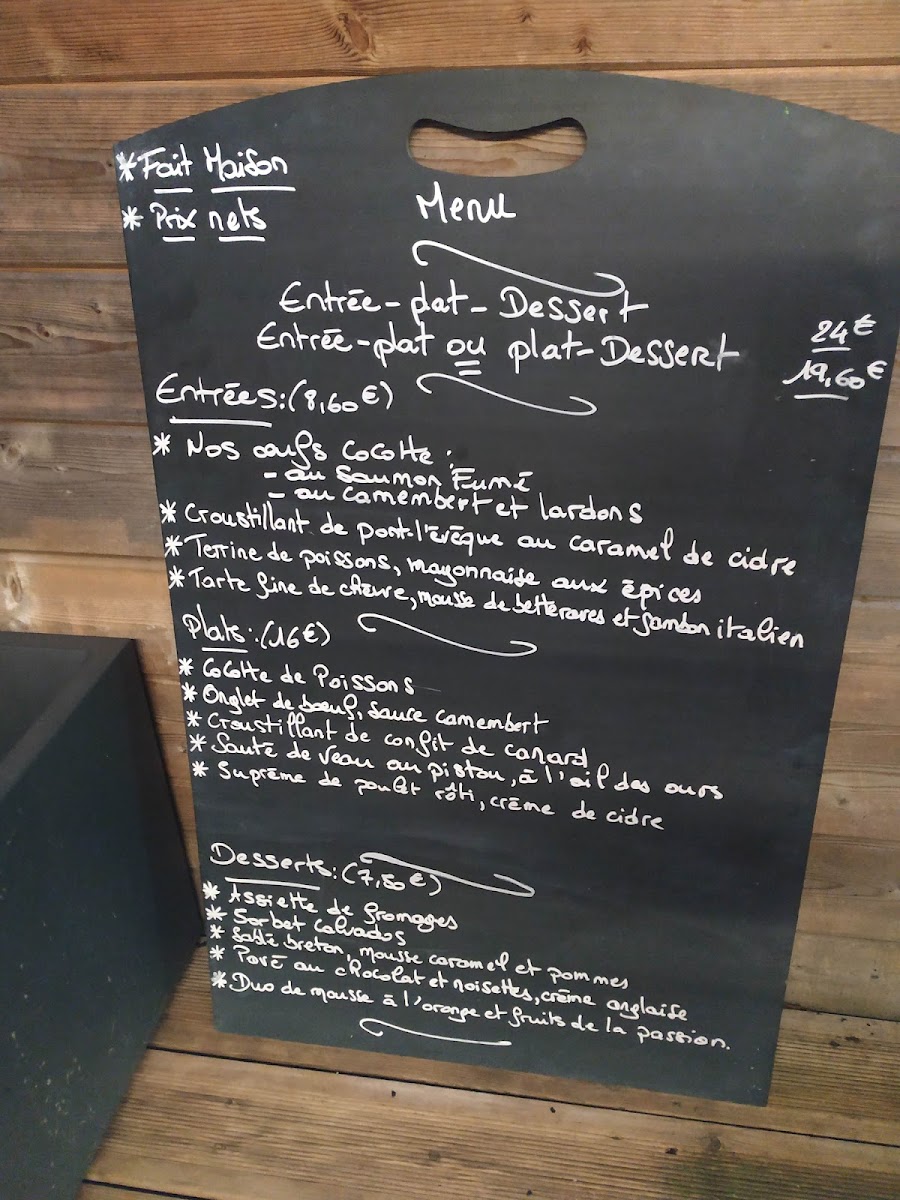 * Fait Maison
* Prix nets
Menu
Entrée-plat-Dessert 24€
Entrée-plat ou plat-Dessert 19,60€
Entrées: (8,60€)
* Nos œufs cocotte:
- au Saumon Fumé
- au camembert et lardons
* Croustillant de pont-l'évêque au caramel de cidre
* Terrine de poissons, mayonnaise aux épices
* Tarte fine de chèvre, mousse de betteraves et jambon italien
Plats: (16€)
* Cocotte de Poissons
* Onglet de bœuf, sauce camembert
* Croustillant de confit de canard
* Sauté de veau au pistou, à l'ail des ours
* Suprême de poulet rôti, crème de cidre
Desserts: (7,80€)
* Assiette de fromages
* Sorbet calvados
* Sablé breton, mousse caramel et pommes
* Pavé au chocolat et noisettes, crème anglaise
* Duo de mousse à l'orange et fruits de la passion.